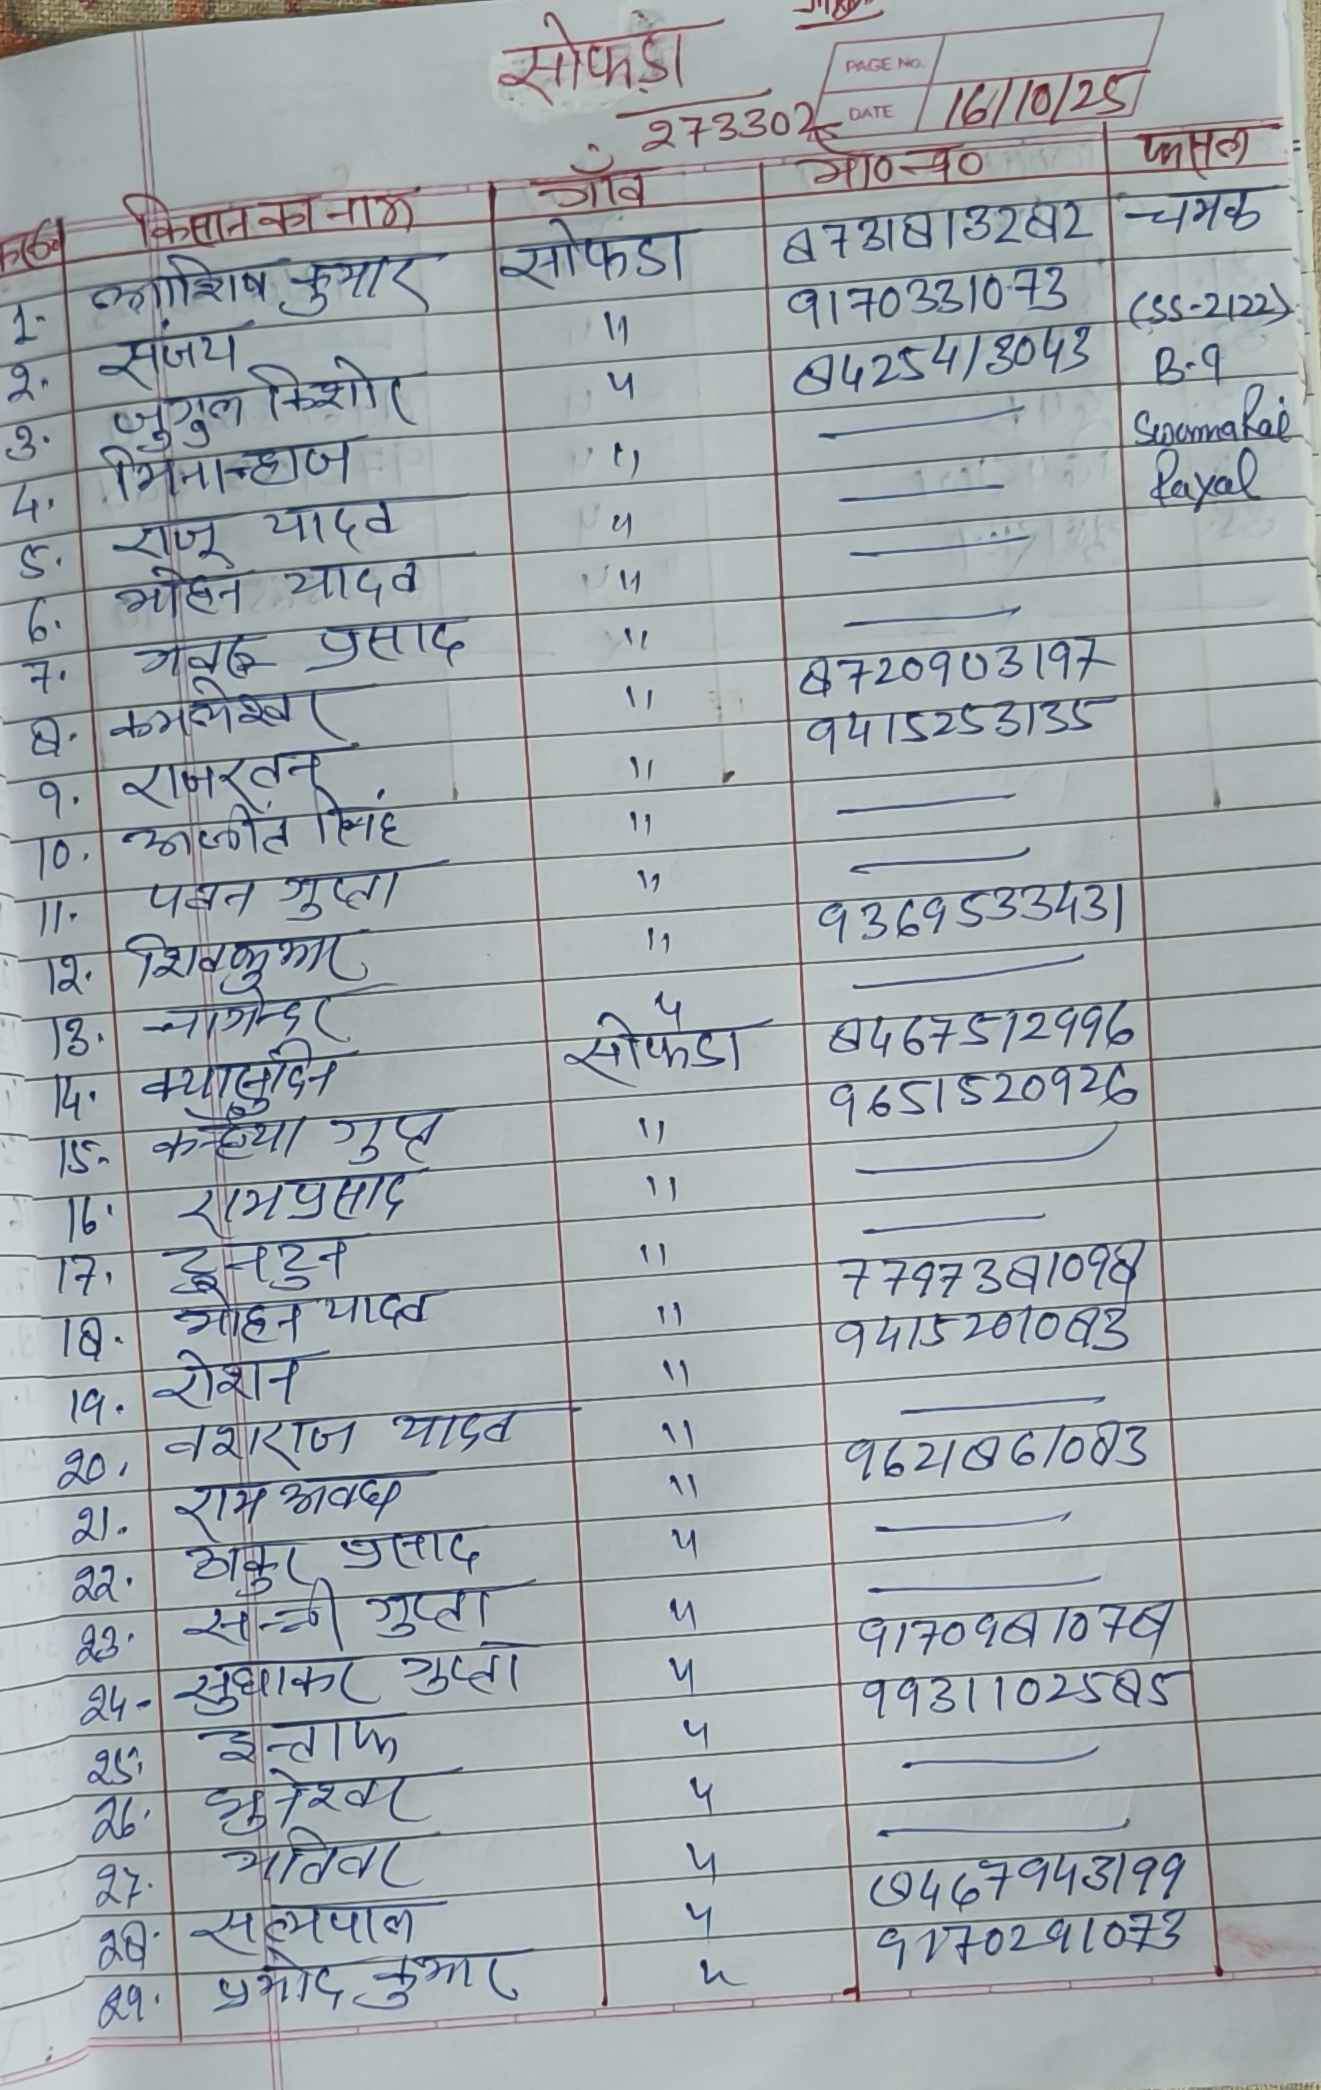 सोफडा
273302
PAGE NO.
DATE 16/10/25
किसान का नाम गाँव मो०न० फसल
1. आशिष कुमार सोफडा 8731813282 चमक
2. संजय " 9170331073 (SS-2122)
3. जुगुल किशोर " 8425413043 B-9
4. मिनान्हाज " — Swarnahal
5. राजू यादव " — Payal
6. मोहन यादव " —
7. प्रसाद " —
8. कमलेश्वर " 8720903197
9. राजरतन " 9415253135
10. अजीत सिंह " —
11. पवन गुप्ता " —
12. शिवकुमार " 9369533431
13. नागेन्द्र " —
14. क्यासुदिन सोफडा 8467512996
15. कन्हैया गुप्त " 9651520926
16. रामप्रसाद " —
17. टुनटुन " —
18. मोहन यादव " 7797381098
19. रोशन " 9415201083
20. वशराज यादव " —
21. राम अवध " 9621861083
22. ठाकुर प्रसाद " —
23. सन्नी गुप्ता " —
24- सुधाकर गुप्ता " 9170981078
25. इन्ताफ " 9931102585
26. मुनेश्वर " —
27. मतिवर " —
28. सत्यपाल " 9467943199
29. प्रमोद कुमार " 9170291073